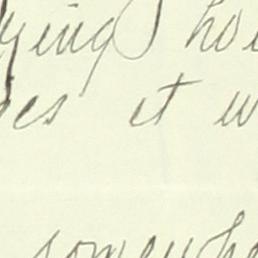 ying hou
es it w
somewhe